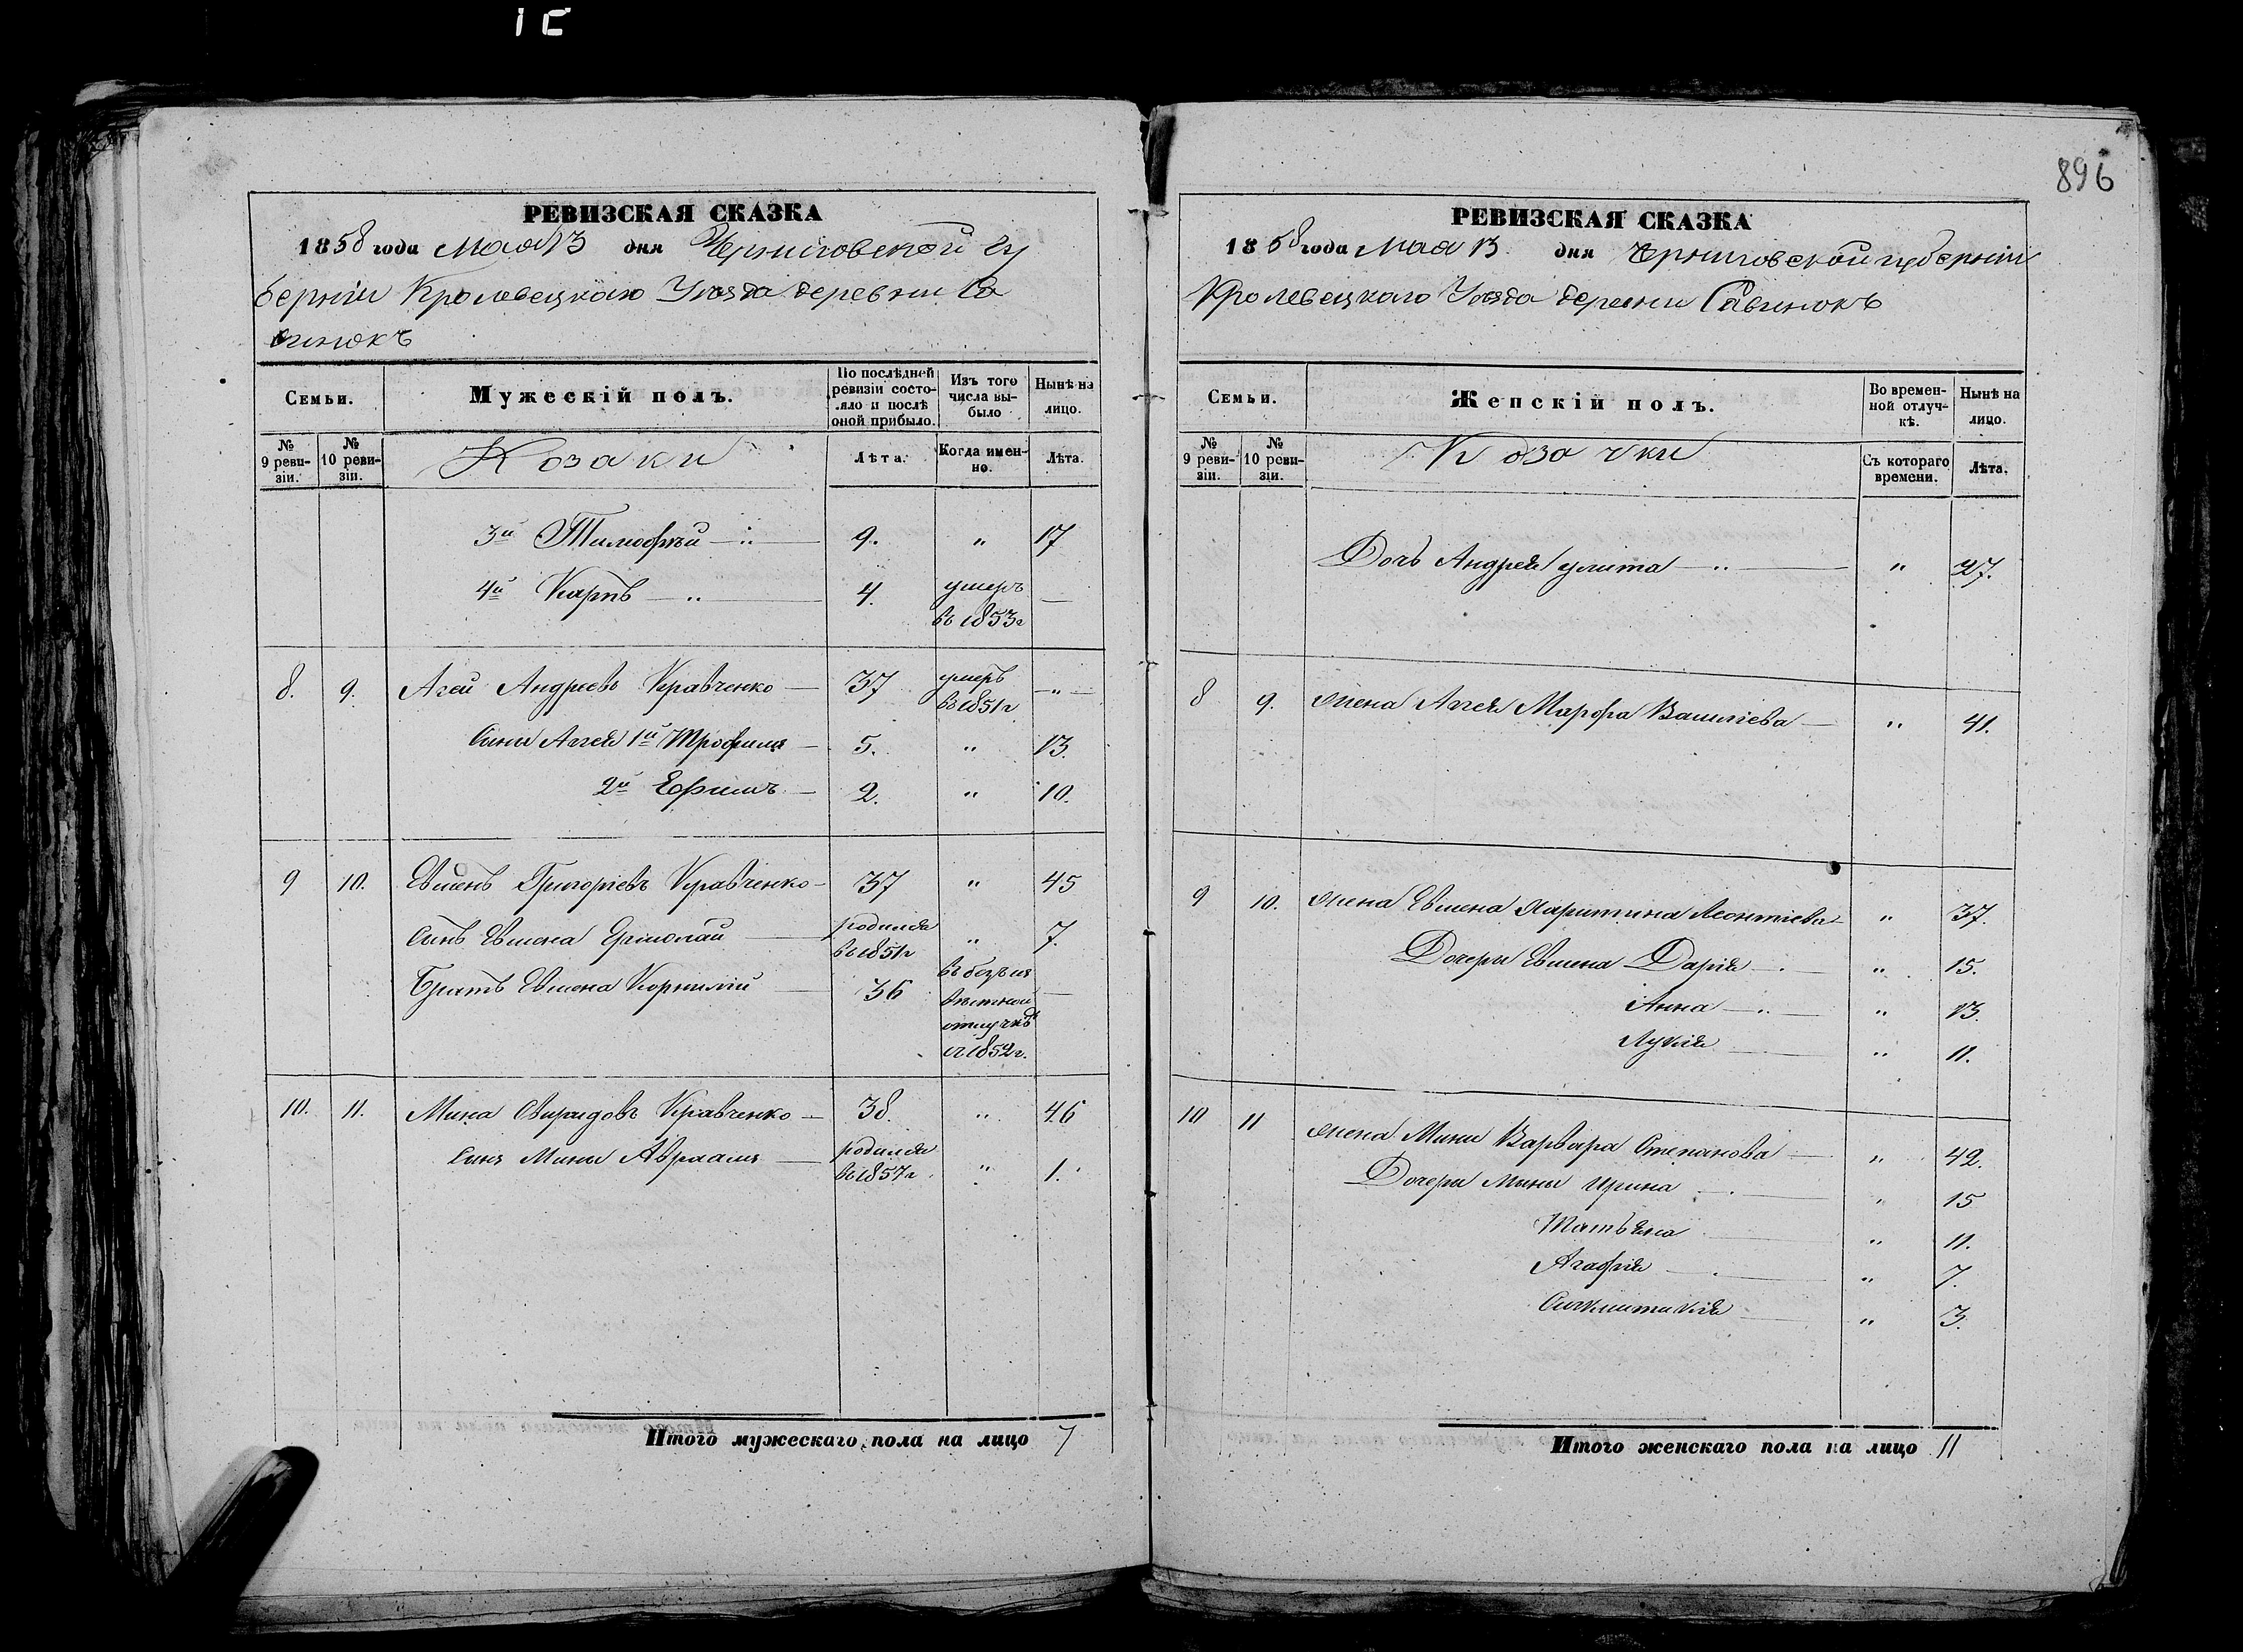 1 С
РЕВИЗСКАЯ СКАЗКА
1858 года Мая 13 дня Черниговской гу
берніи Кролевецкаго Уезда деревни Са
винокъ
Семьи.
Мужескій полъ.
По послѣдней ревизіи состояло и послѣ оной прибыло.
Изъ того числа выбыло
Нынѣ на лицо.
№ 9 ревизіи.
№ 10 ревизіи.
Козаки
Лѣта.
Когда именно.
Лѣта.
3й Тимофѣй 9. " 17
4й Карпъ 4. умеръ въ 1853г —
8. 9. Агей Андреевъ Кравченко 37 умеръ въ 1851г "
Сыны Аггея 1й Трофимъ 5. " 13.
2й Ефимъ 2. " 10.
9 10. Евменъ Григоріевъ Кравченко 37 " 45
Сынъ Евмена Ермолай родился въ 1851г " 7.
Братъ Евмена Корнилій 36 въ безъизвѣстной отлучкѣ съ 1852г. —
10. 11. Мина Свиридовъ Кравченко 38. " 46
Сынъ Мины Авраамъ родился въ 1857г " 1.
Итого мужескаго пола на лицо 7
896
РЕВИЗСКАЯ СКАЗКА
1858 года Мая 13 дня Черниговской губерніи
Кролевецкаго Уезда деревни Савинокъ
Семьи.
Женскій полъ.
Во временной отлучкѣ.
Нынѣ на лицо.
№ 9 ревизіи.
№ 10 ревизіи.
Козачки
Съ котораго времени.
Лѣта.
Дочь Андрея Улита " 27.
8 9. Жена Аггея Марфа Василіева " 41.
9 10. Жена Евмена Харитина Леонтіева " 37.
Дочери Евмена Дарія " 15.
Анна " 13.
Лукія " 11.
10 11 Жена Мины Варвара Степанова " 42.
Дочери Мины Ирина " 15
Татьяна " 11.
Агафія " 7.
Сигклитикія " 3.
Итого женскаго пола на лицо 11